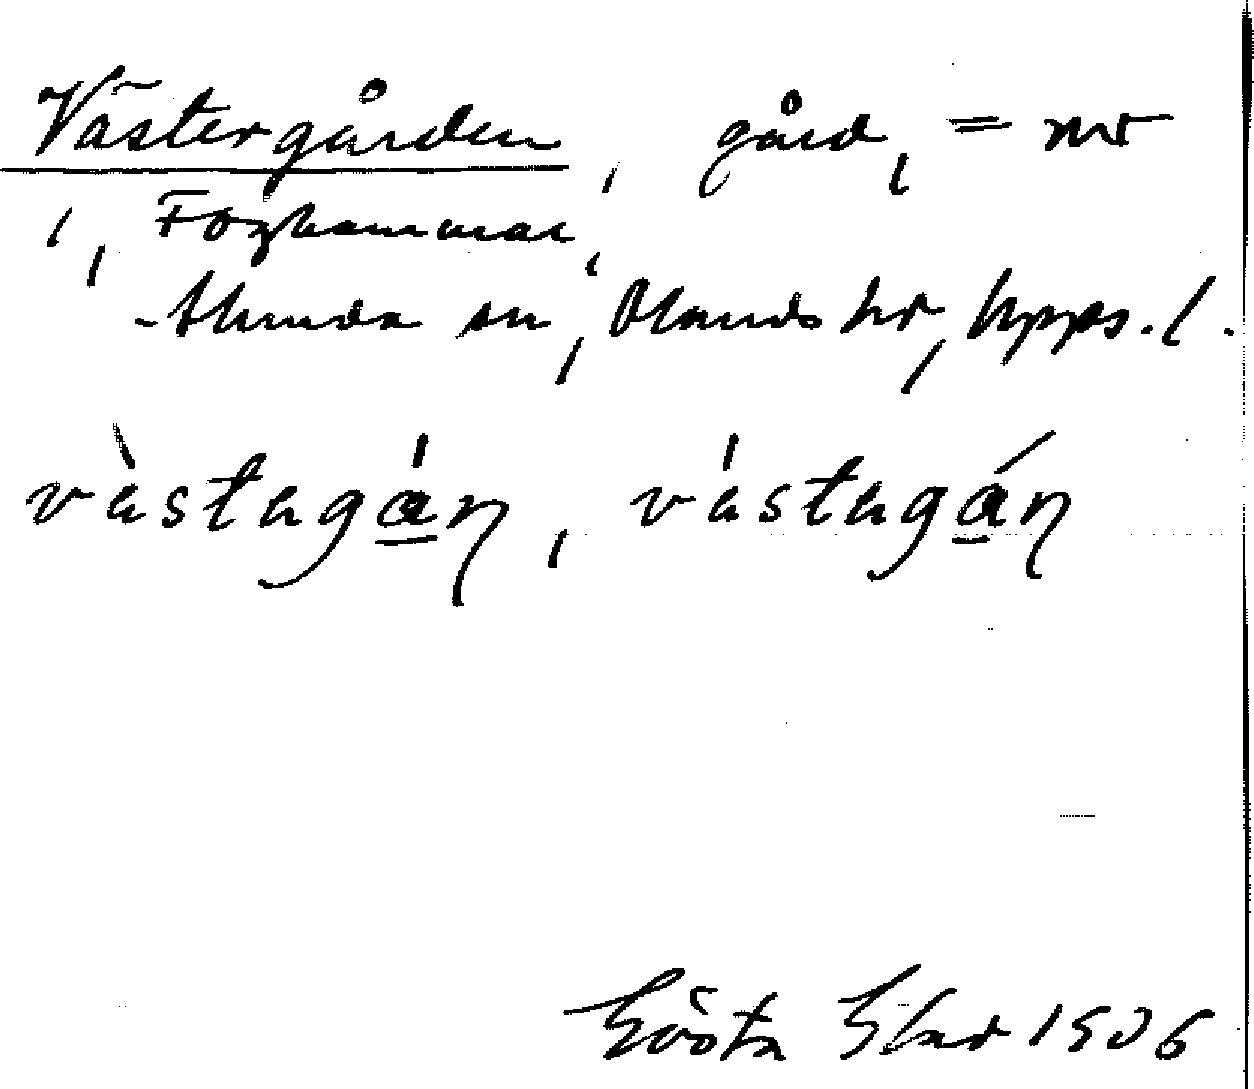 Västergården, gård, = nr
1, Foghammar,
Alunda sn, Olands hd, Upps. l.
vàstagán, vástagán
Gösta 1906